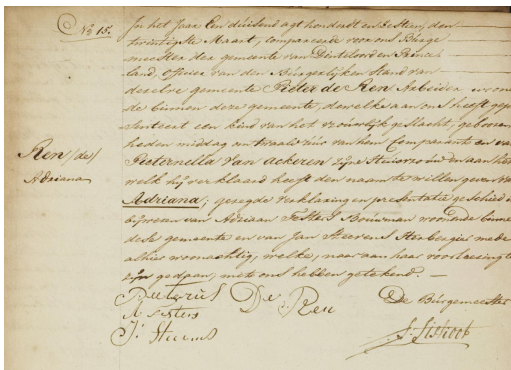 No 15.
In het Jaar Een duizend agt honderd en Zestien, den
twintigste Maart, compareerde voor ons Burge
meester der gemeente van Dinteloord en Prinse
land, Officier van den Burgerlijken Stand van
dezelve gemeente Pieter de Ren Arbeider woonen
de binnen deze gemeente, dewelke aan ons heeft gepre
senteert een kind van het vrouwelijk geslacht, gebooren
heden middag om twaalf uur van hem Comparante en van
Pieternella Van Ackeren zijne Huisvrouw en aan het
welk hij verklaard heeft den naam te willen geven van
Adriana; gezegde verklaring en presentatie geschied in
bijweesen van Adriaan Testers woonende binnen
deze gemeente en van Jan Steevens mede
alhier woonachtig, welke, naar aan haar voorleesing te
zijn gedaan, met ons hebben getekend. —
Ren (de)
Adriana
Peeterus De Ren
De Burgemeester
J: Steevens